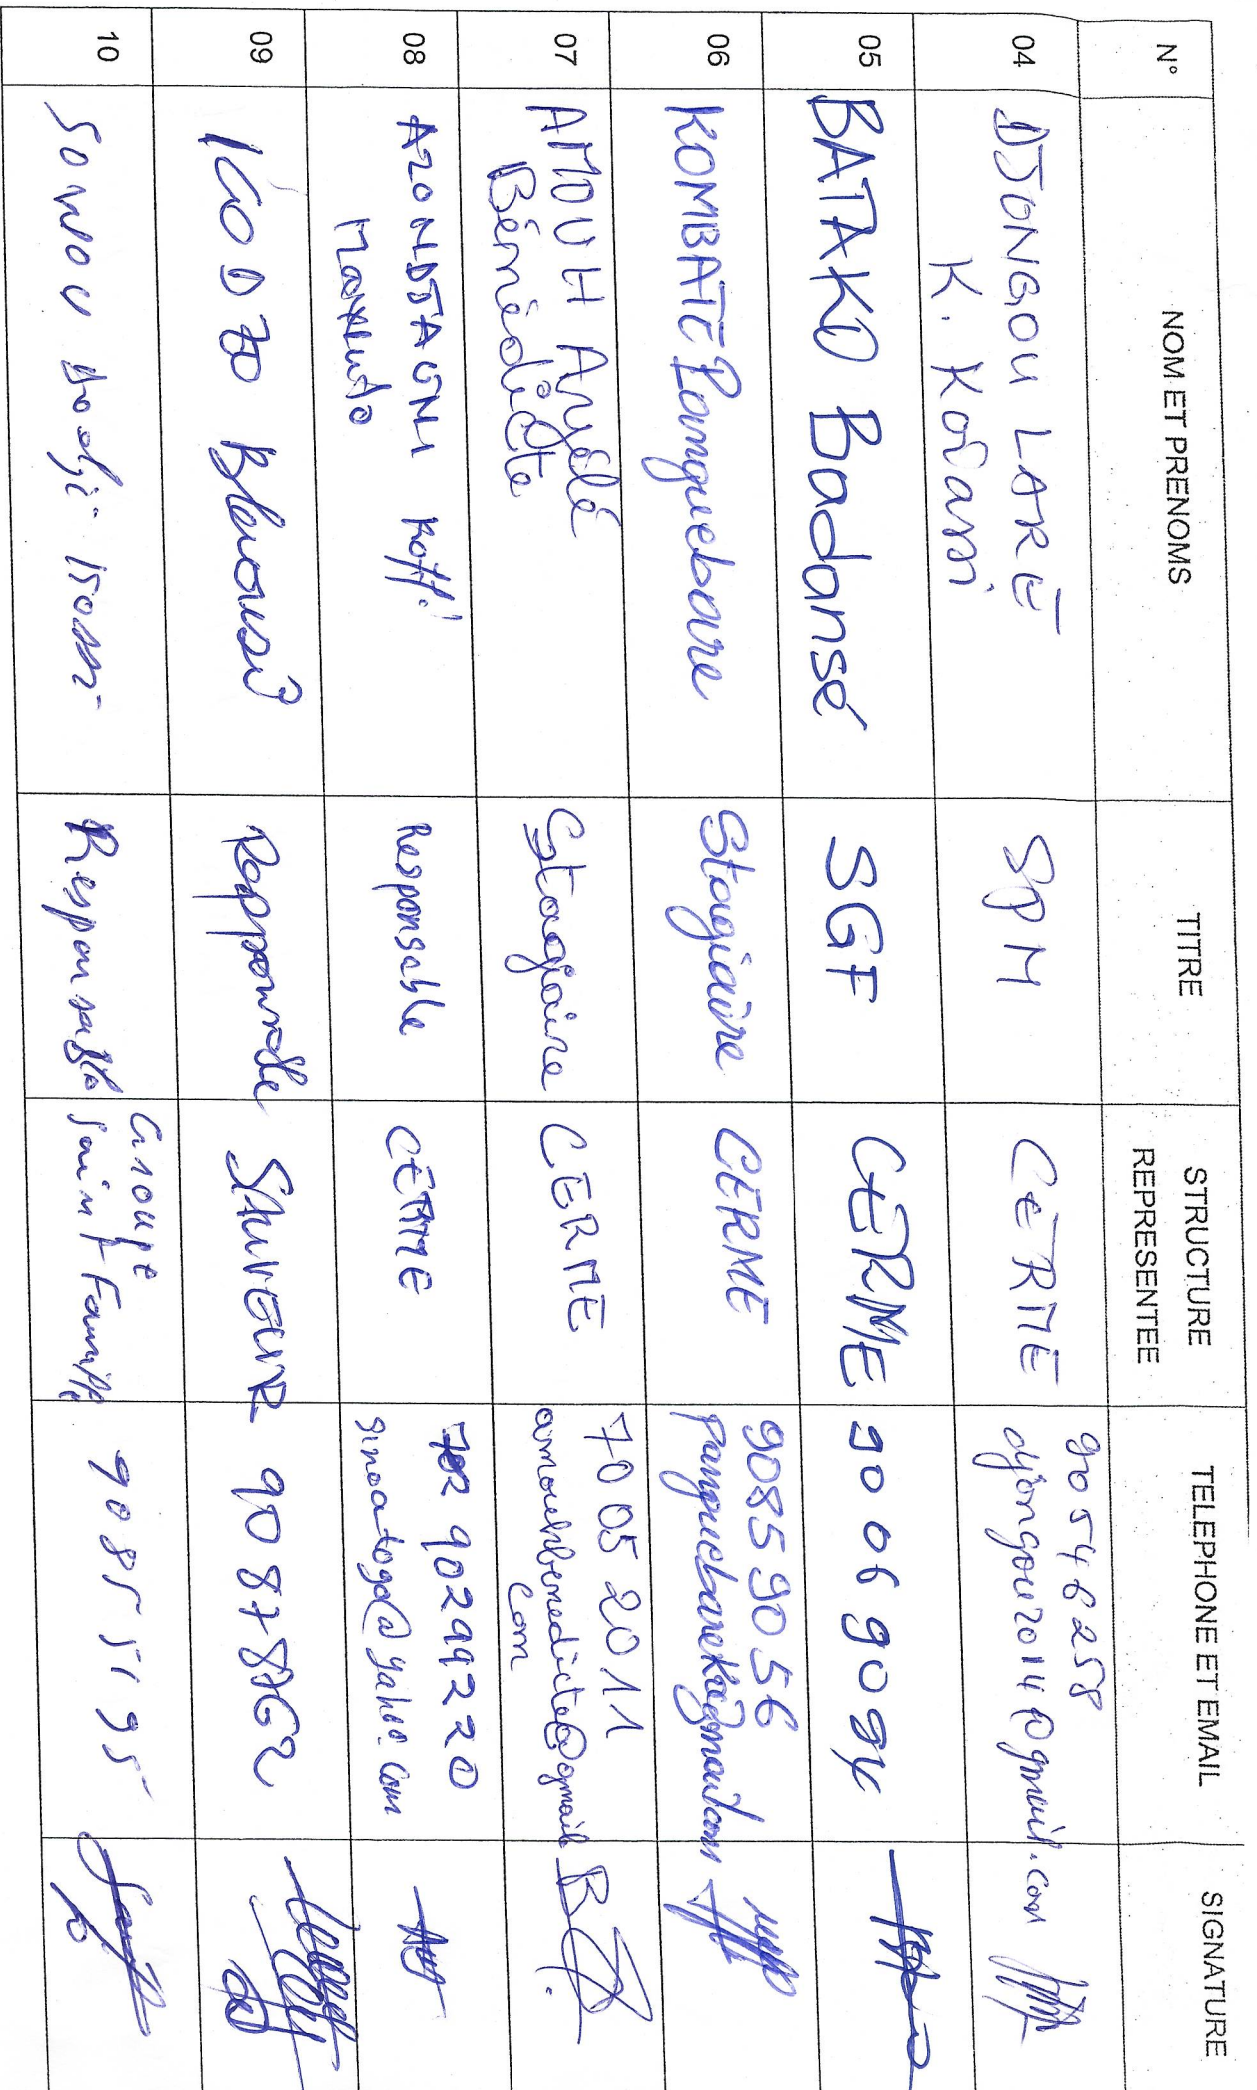 N° NOM ET PRENOMS TITRE STRUCTURE REPRESENTEE TELEPHONE ET EMAIL SIGNATURE
04 DJONGOU LARE SPM CERME 90546258
K. Kossi djongou2014@gmail.com
05 BATAKO Badansé SGF CERME 90 06 90 94
06 KOMBATE Panguebare Stagiaire CERME 90859056
panguebareko@gmail.com
07 AMOUH Ayélé Stagiaire CERME 70 05 20 11
Bénédicte amouhbenedicte@gmail
com
08 AZONDJAGNI Koffi Responsable CERME 90299220
Maxento ginoatogo@yahoo.com
09 KODZO Blewusi Responsable SAUVEUR 90878762
10 SOWOU Dodji Kossi Responsable Groupe 90855195
Saint Famille